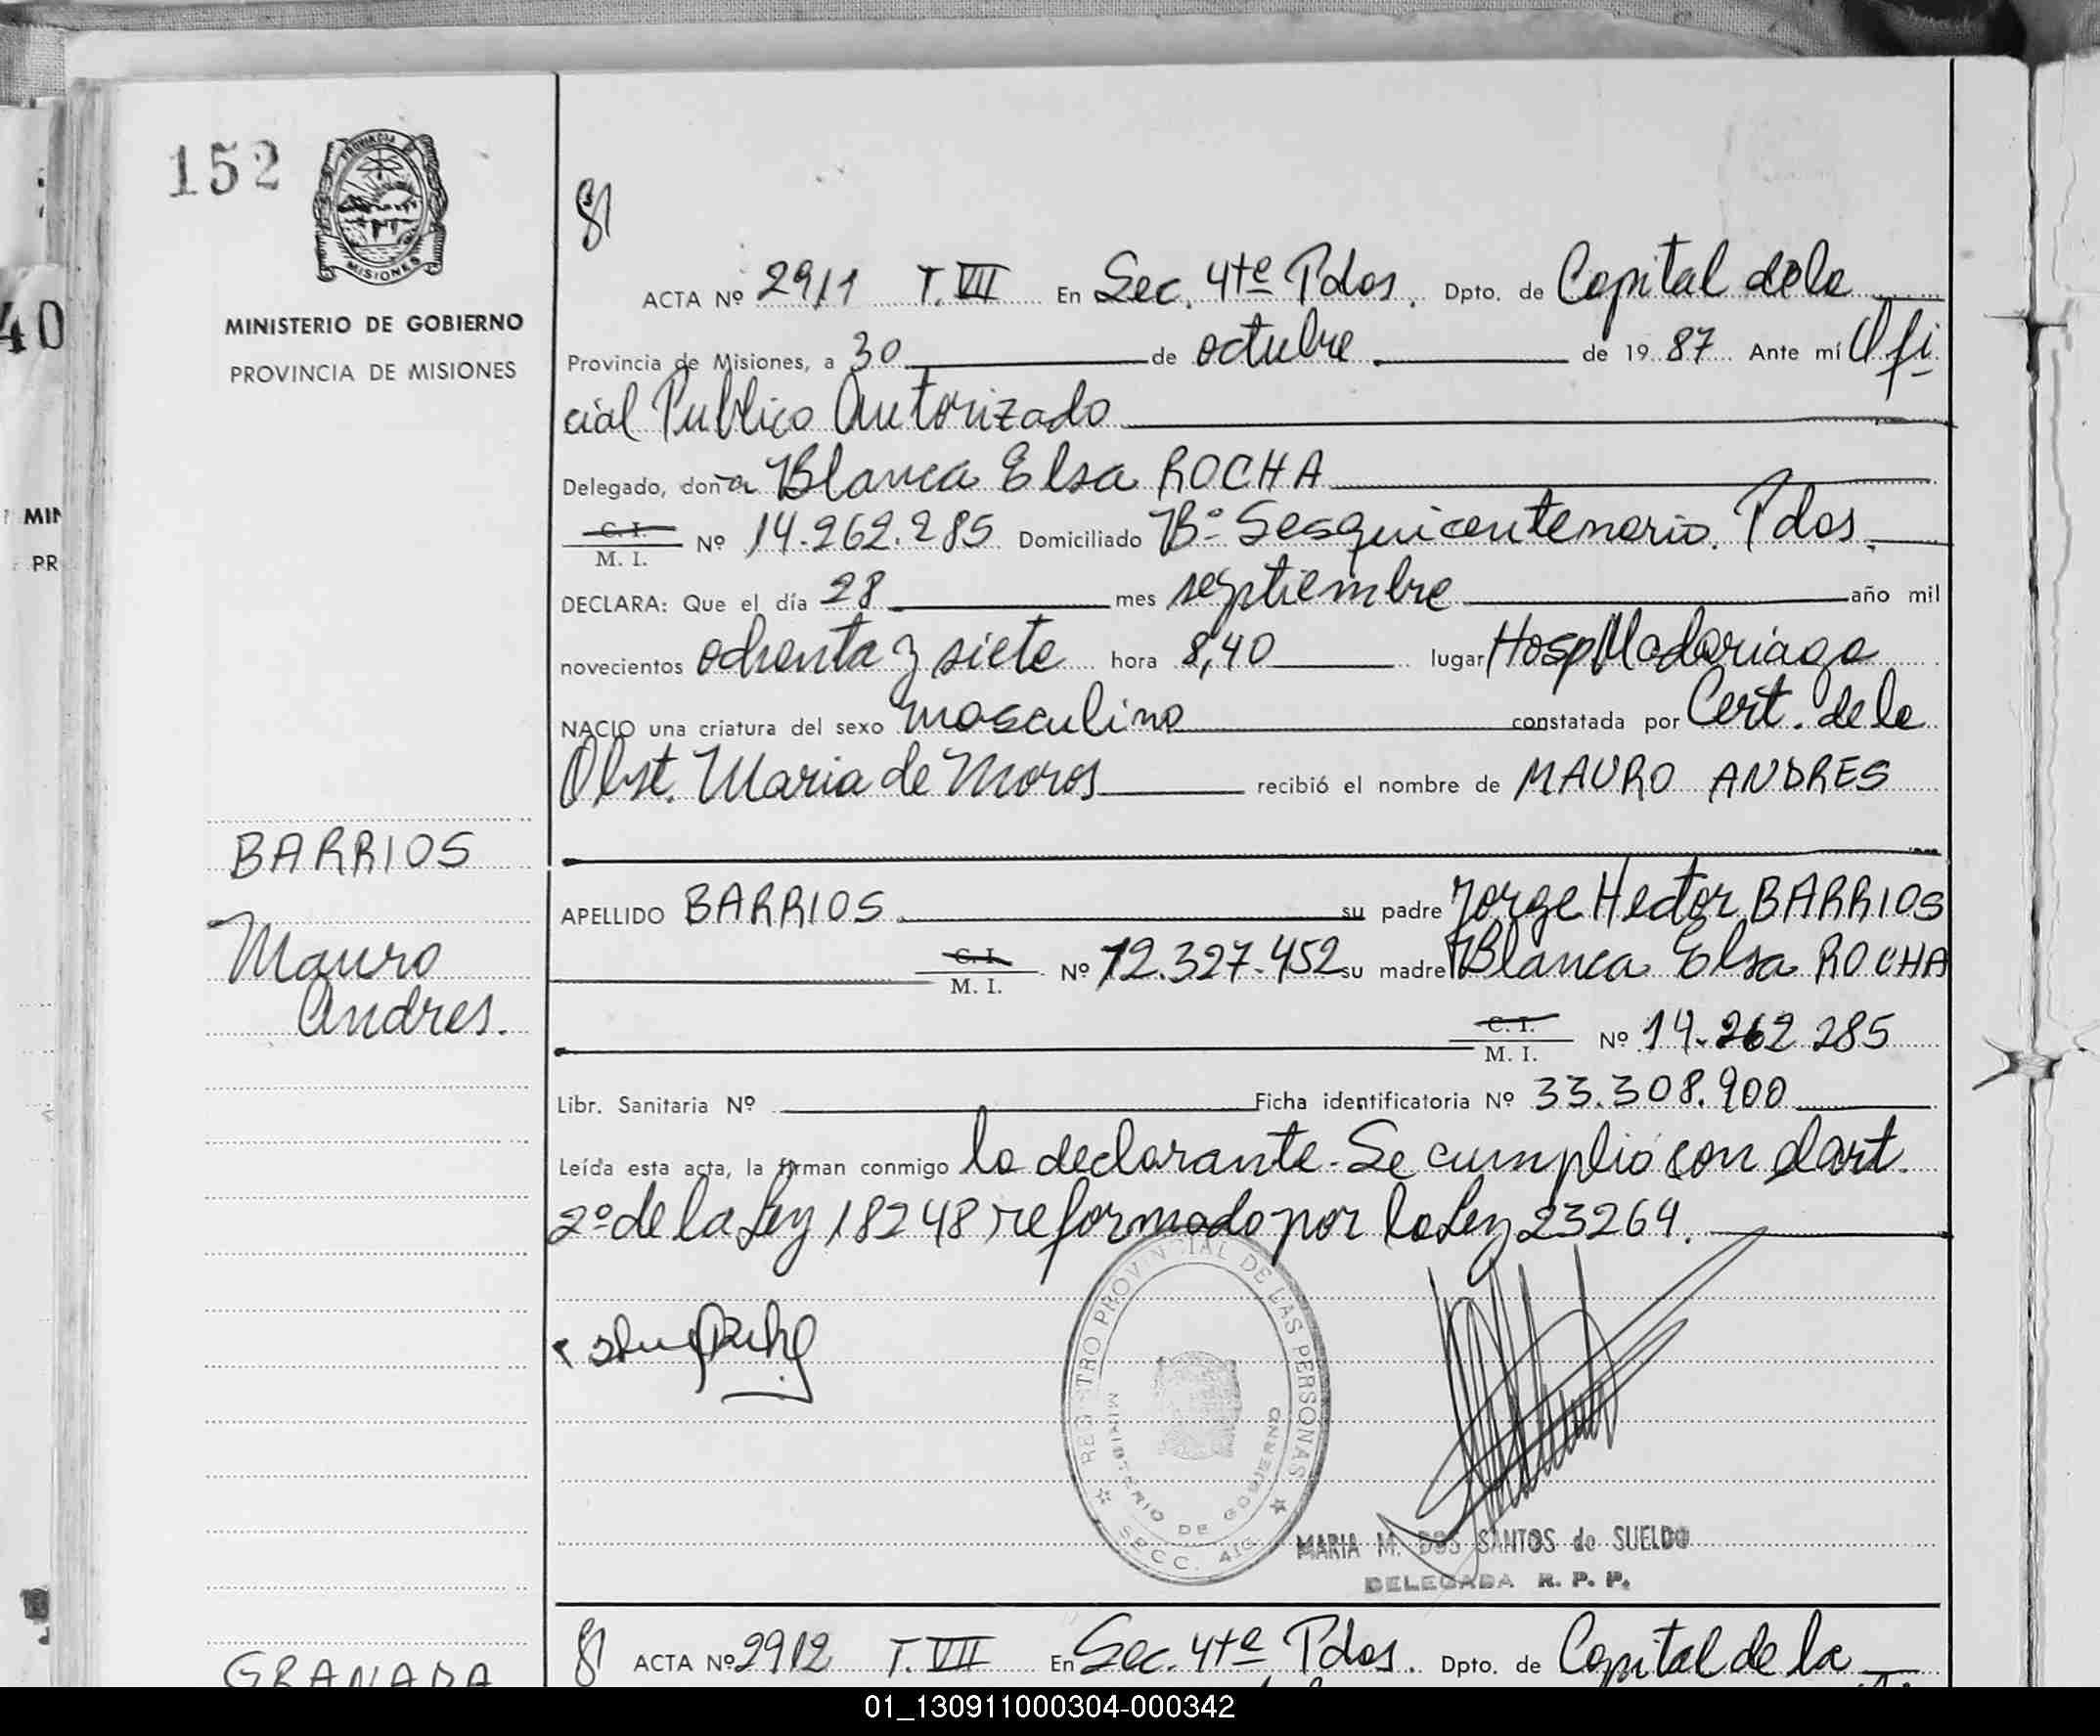 152
PROVINCIA DE
MISIONES
MINISTERIO DE GOBIERNO
PROVINCIA DE MISIONES
40
MIN
PR
BARRIOS
Mauro
Andres.
ACTA Nº 2911 T. VII En Sec. 4ta Pdas. Dpto. de Capital de la
Provincia de Misiones, a 30 de octubre de 1987 Ante mí Ofi-
cial Publico Autorizado
Delegado, doña Blanca Elsa ROCHA
C. I.
M. I. Nº 14.262.285 Domiciliado Bº Sesquicentenario. Pdas.
DECLARA: Que el día 28 mes septiembre año mil
novecientos ochenta y siete hora 8,40 lugar Hosp Madariaga
NACIO una criatura del sexo masculino constatada por Cert. de la
Obst. Maria de Moros recibió el nombre de MAURO ANDRES
APELLIDO BARRIOS su padre Jorge Hector BARRIOS
C. I.
M. I. Nº 12.327.452 su madre Blanca Elsa ROCHA
C. I.
M. I. Nº 14.262 285
Libr. Sanitaria Nº Ficha identificatoria Nº 33.308.900
Leída esta acta, la firman conmigo la declarante. Se cumplió con el art.
2º de la Ley 18248 reformado por la Ley 23264.
REGISTRO PROVINCIAL DE LAS PERSONAS
MINISTERIO DE GOBIERNO
SECC. 4ta
MARIA M. DOS SANTOS de SUELDO
DELEGADA R. P. P.
GRANADA
ACTA Nº 2912 T. VII En Sec. 4ta Pdas. Dpto. de Capital de la
01_130911000304-000342